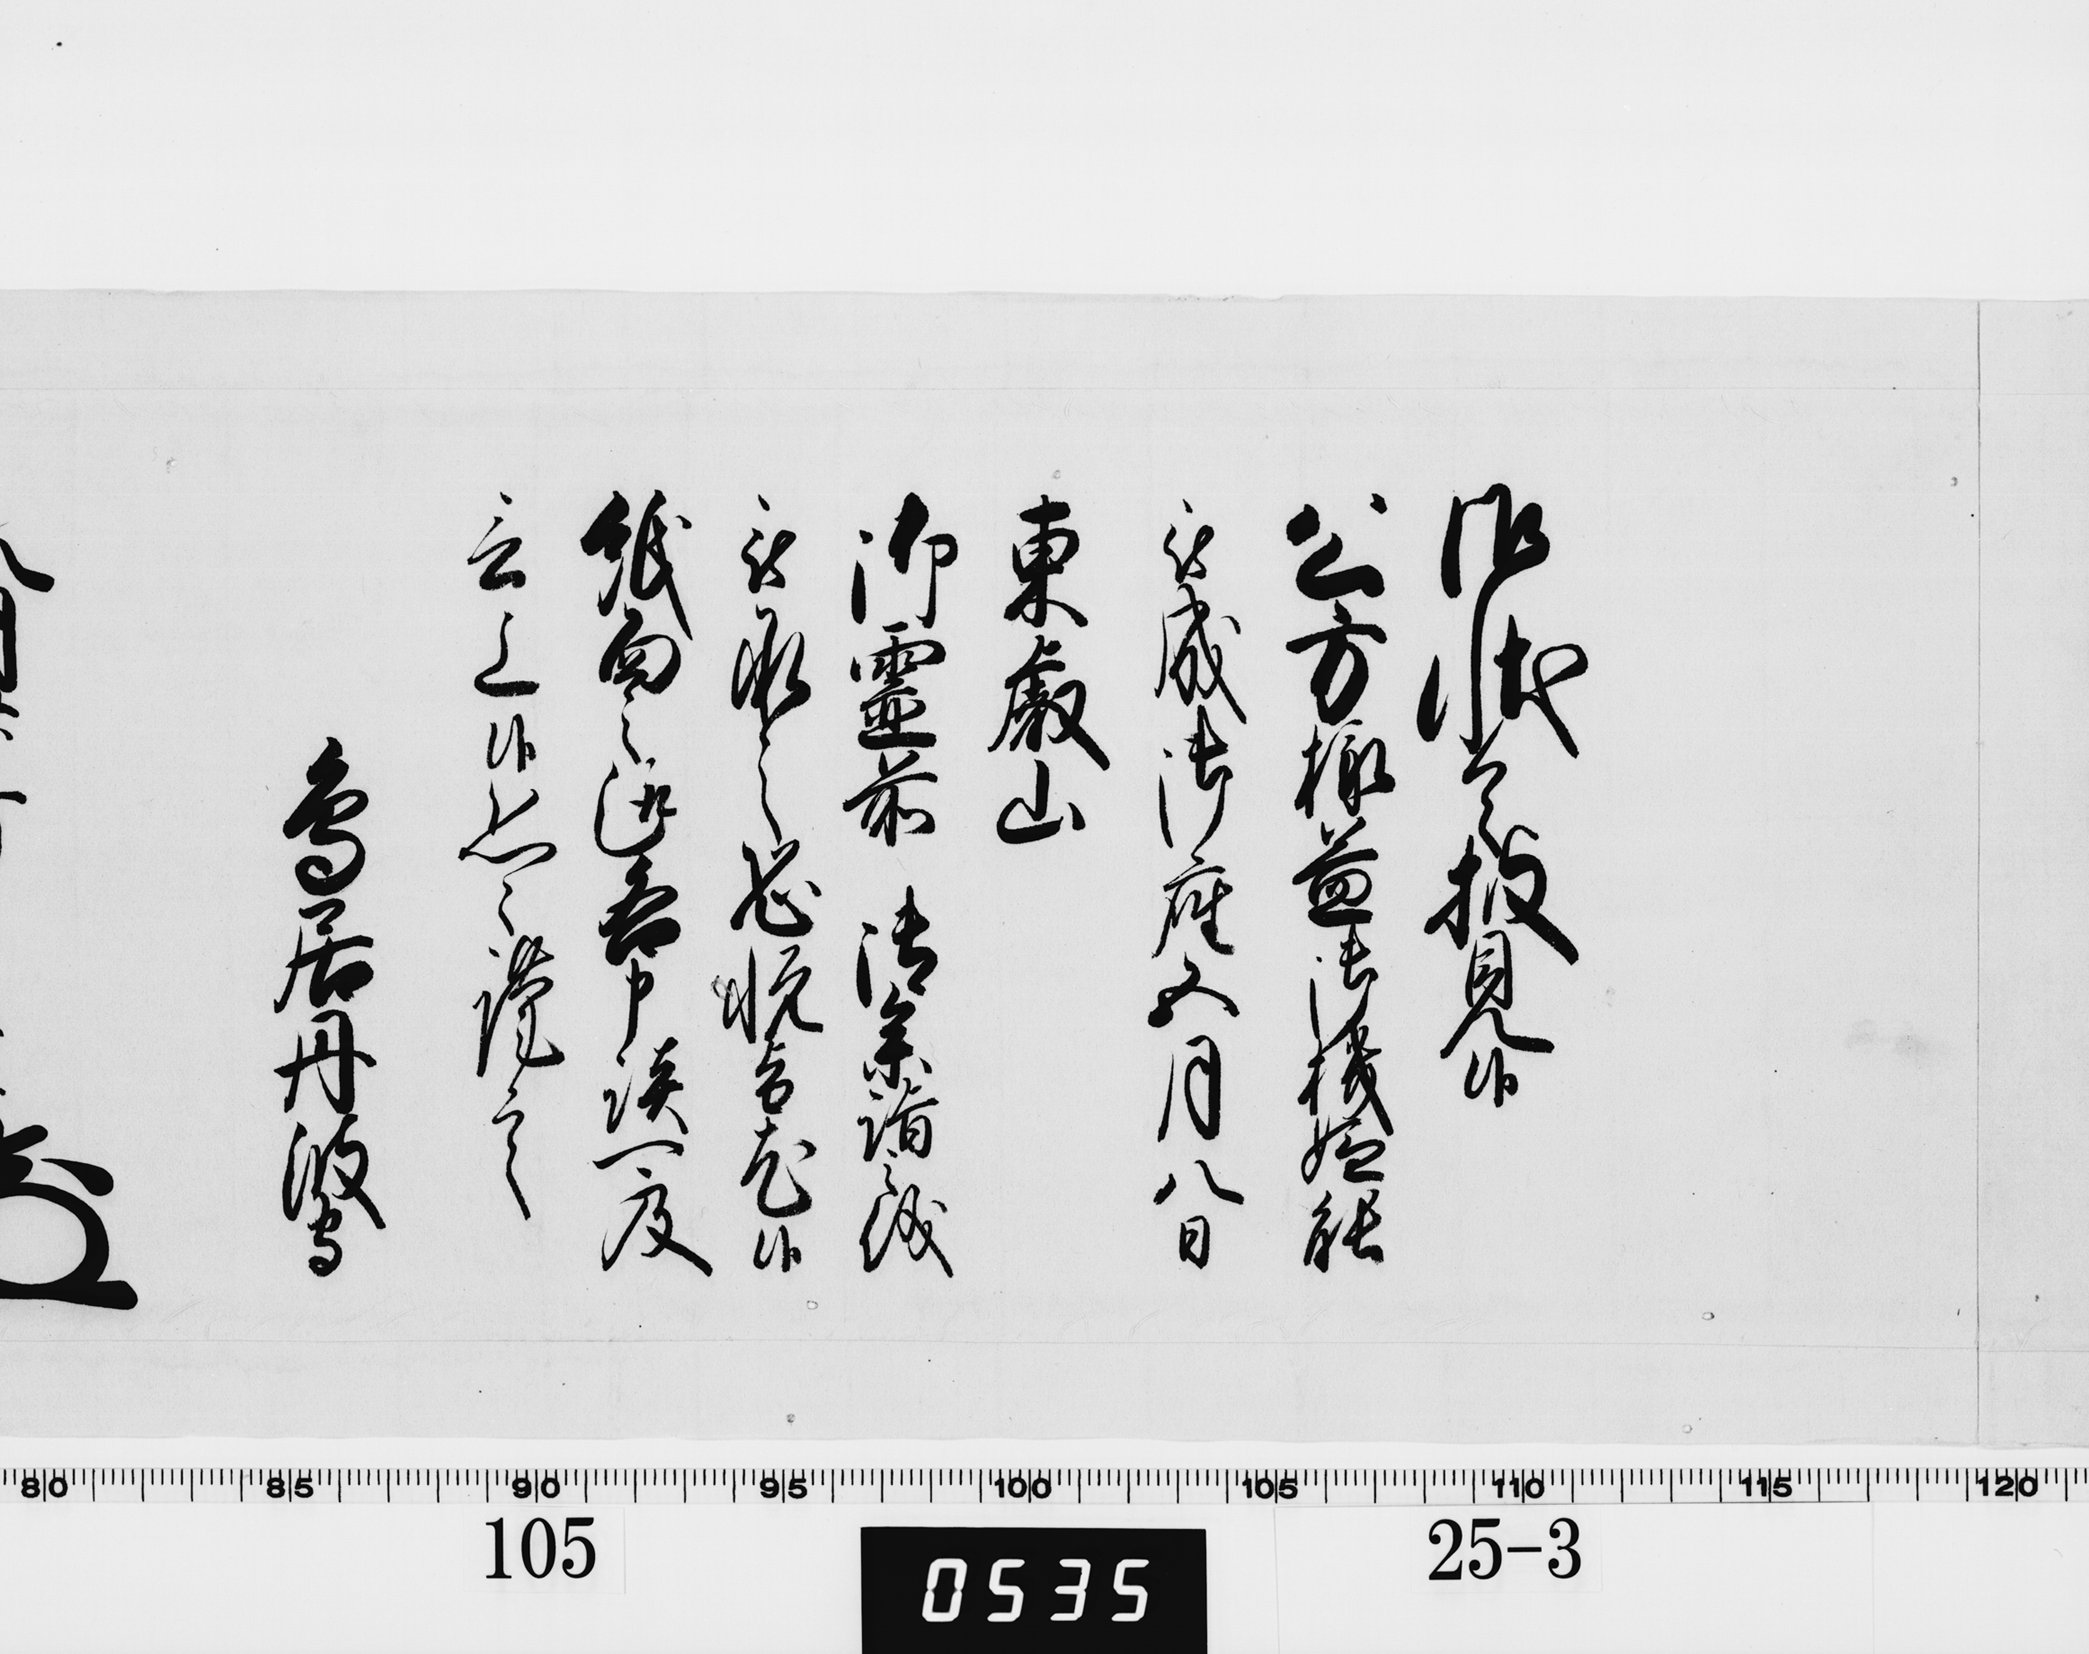 御状令披見候
公方様益御機嫌能
被成御座五月八日
東叡山
御霊前 御参詣之儀
被承之恐悦旨尤候
紙面之趣各申談一同及
言上候恐々謹言
鳥居丹波守
80 85 90 95 100 105 110 115 120
105
0535
25-3